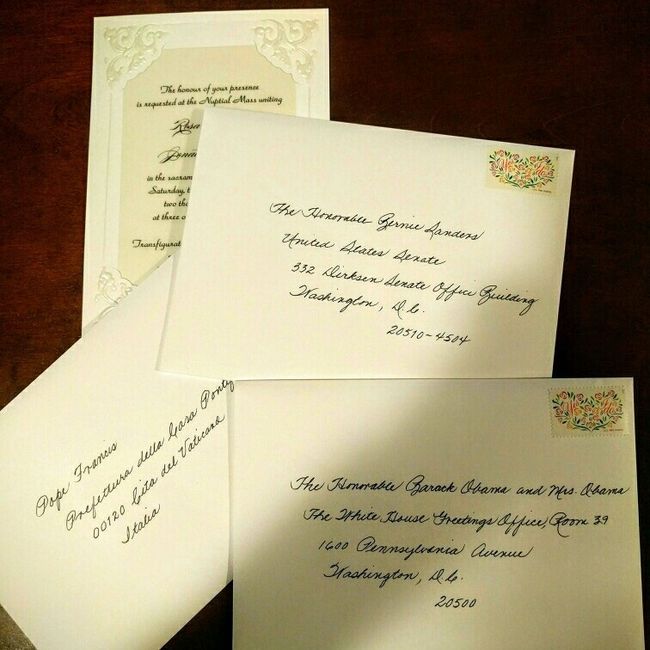 The honour of your presence
is requested at the Nuptial Mass uniting
in the sacram
Saturday, t
two tho
at three o
Transfigurat
The Honorable Bernie Sanders
United States Senate
332 Dirksen Senate Office Building
Washington, D.C.
20510-4504
Pope Francis
Prefettura della Casa Pontif
00120 Cita del Vaticano
Italia
The Honorable Barack Obama and Mrs. Obama
The White House Greetings Office Room 39
1600 Pennsylvania Avenue
Washington, D.C.
20500